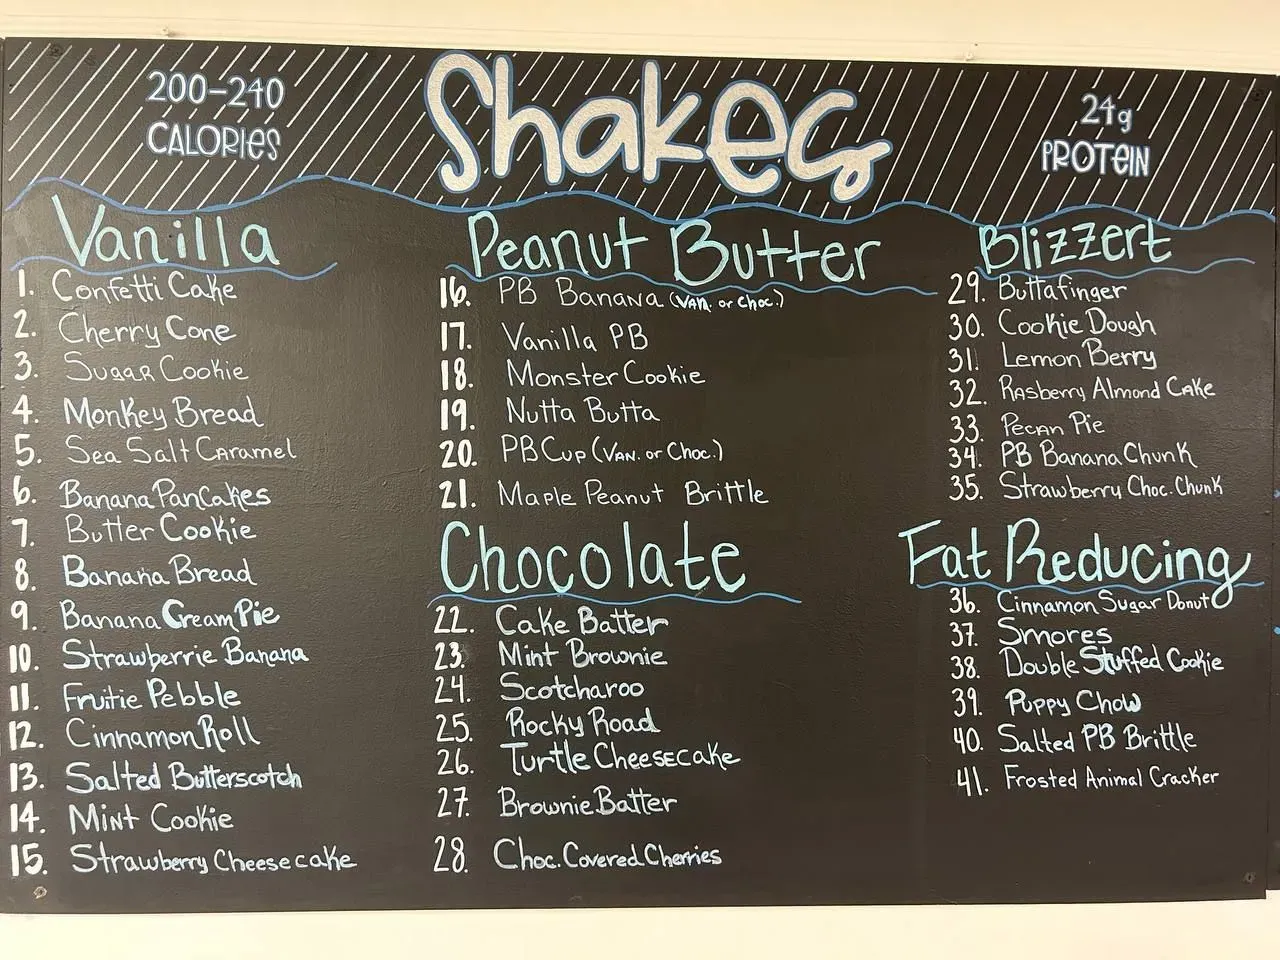 200-240
CALORIES
Shakes
24g
PROTEIN
Vanilla
1. Confetti Cake
2. Cherry Cone
3. Sugar Cookie
4. Monkey Bread
5. Sea Salt Caramel
6. Banana Pancakes
7. Butter Cookie
8. Banana Bread
9. Banana Cream Pie
10. Strawberrie Banana
11. Fruitie Pebble
12. Cinnamon Roll
13. Salted Butterscotch
14. Mint Cookie
15. Strawberry Cheesecake
Peanut Butter
16. PB Banana (Van. or Choc.)
17. Vanilla PB
18. Monster Cookie
19. Nutta Butta
20. PB Cup (Van. or Choc.)
21. Maple Peanut Brittle
Chocolate
22. Cake Batter
23. Mint Brownie
24. Scotcharoo
25. Rocky Road
26. Turtle Cheesecake
27. Brownie Batter
28. Choc. Covered Cherries
Blizzert
29. Buttafinger
30. Cookie Dough
31. Lemon Berry
32. Rasberry Almond Cake
33. Pecan Pie
34. PB Banana Chunk
35. Strawberry Choc. Chunk
Fat Reducing
36. Cinnamon Sugar Donut
37. Smores
38. Double Stuffed Cookie
39. Puppy Chow
40. Salted PB Brittle
41. Frosted Animal Cracker